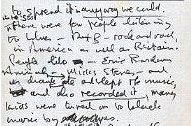 to spread it anyway we could,
there were few people listening
to blues – R & B – rock and roll,
in America as well as Britain.
People like Eric Burdon
Stones, and
all kept of music,
and also recorded it, many
kids were turned on to black
music by